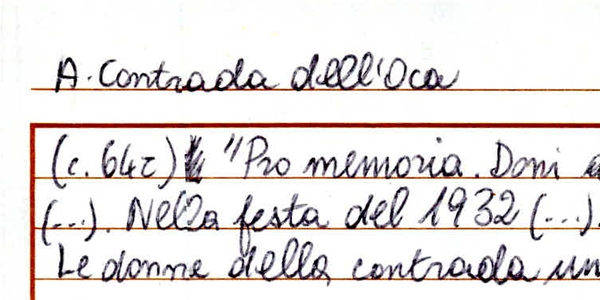 A. Contrada dell'Oca
(c. 64r) "Pro memoria. Doni
(...). Nella festa del 1932 (...).
Le donne della contrada un